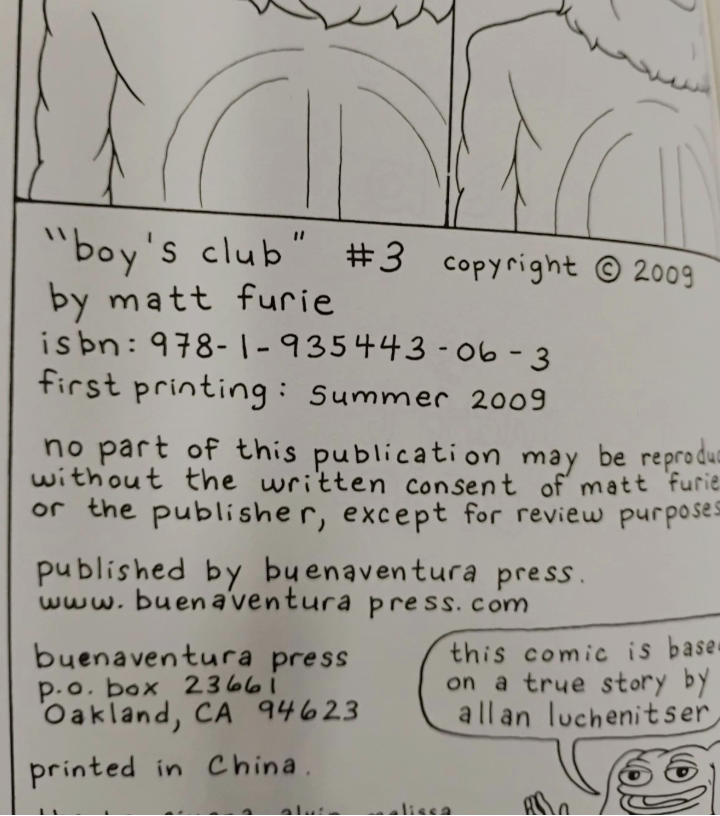 "boy's club" #3 copyright © 2009
by matt furie
isbn: 978-1-935443-06-3
first printing: summer 2009
no part of this publication may be reprodu
without the written consent of matt furie
or the publisher, except for review purposes
published by buenaventura press.
www.buenaventurapress.com
buenaventura press
p.o. box 23661
Oakland, CA 94623
printed in China.
this comic is base
on a true story by
allan luchenitser